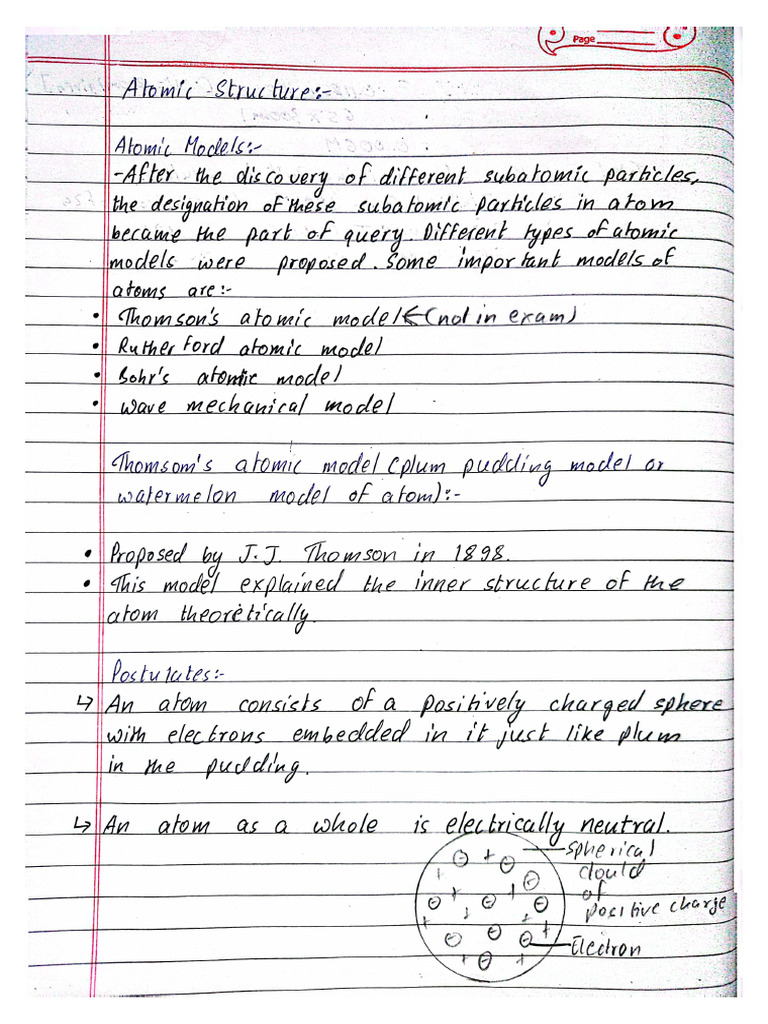 Page
Atomic Structure:-
Atomic Models:-
-After the discovery of different subatomic particles,
the designation of these subatomic particles in atom
became the part of query. Different types of atomic
models were proposed. Some important models of
atoms are:-
• Thomson's atomic model ← (not in exam)
• Rutherford atomic model
• Bohr's atomic model
• wave mechanical model
Thomsom's atomic model (plum pudding model or
watermelon model of atom):-
• Proposed by J.J. Thomson in 1898.
• This model explained the inner structure of the
atom theoretically.
Postulates:-
↳ An atom consists of a positively charged sphere
with electrons embedded in it just like plum
in the pudding.
↳ An atom as a whole is electrically neutral.
spherical
clould
of
positive charge
Electron